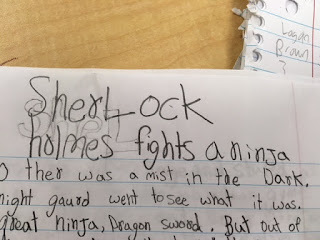 SherLock
holmes fights a ninja
O ther was a mist in the Dark.
night gaurd went to see what it was.
great ninja, Dragon sword. But out of
Logan
Brown
3